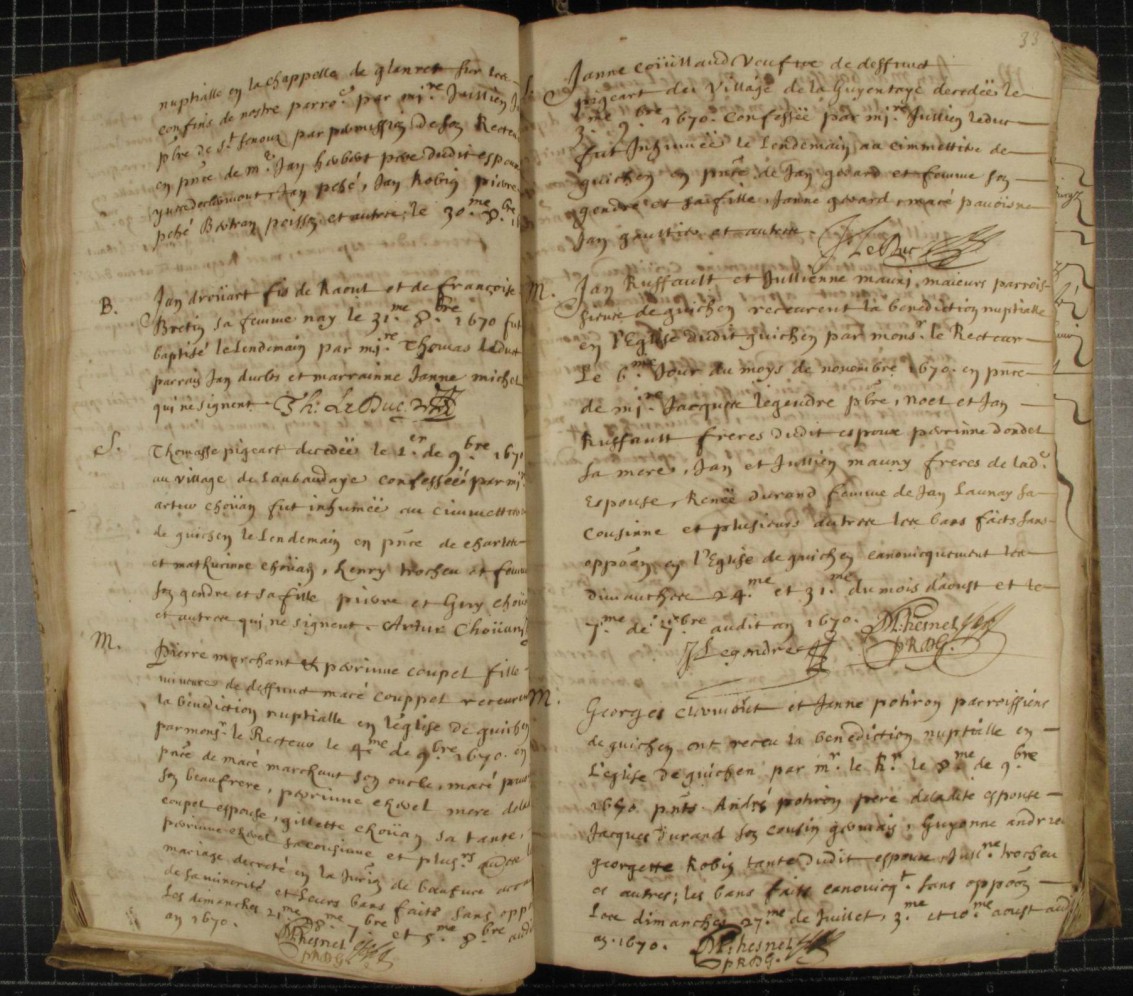 nuptialle en la chappelle de glanret sur les
confins de nostre parro.e par mi.re Jullien
pbre de S.t Senoux par permission de son Recteur
en pnce de m.e Jan hobort pere dudit espoux
Jan pehé, Jan Robin pierre
pehé Bertran poisson et autres, le 30.me 8.bre
B. Jan droüart fis de Raoul et de françoise
Bretin sa femme nay le 31.me 8.bre 1670 fut
baptisé le Lendemain par mi.re Thomas Leduc
parrain Jan durbs et marrainne Janne michel
qui ne signent. Th: Le Duc
S. Thomasse pigeart decedëe le 1.er de 9.bre 1670
au village de Lanbaudaye confessëe par mi.re
artur choüan fut inhumëe au cimmettere
de guichen le Lendemain en pnce de charlotte
et mathurinne choüan, Henry trocheu et femme
son gendre et sa fille pierre et Guy choüan
et autres qui ne signent. Artur Choüan
M. Pierre marchant & perrinne coupel fille
mineure de deffunct macé couppel receurent
la bénédiction nuptialle en l'église de guichen
par mons.r le Recteur le 4.me de 9.bre 1670. en
pnce de macé marchant son oncle, macé
son beaufrere, perrinne chevel mere de lad.
coupel espouse, gillette choüan sa tante,
perrinne chevel sa cousinne et plus.rs autres le
mariage decreté en la Juri.on de bœufvre
de sa minorité et leurs bans faits sans opp.
Les dimanches 21.me 28.me 7.bre et 5.me 8.bre audit
an 1670. M. hesnel
p R D G.
33
Janne coüillaud Veufve de deffunct
pigeart du Village de la Guyentaye decedëe le
3.me 9.bre 1670. Confessëe par mi.re Jullien leduc
fut Inhumëe le Lendemain au cimmettere de
guichen en pnce de Jan gerard et femme son
gendre et sa fille, Janne gerard, macé pavoisne
Jan gaultier et autres. J. Le Duc
M. Jan Ruffault et Jullienne mauni, maieurs parrois-
siens de guichen receurent la benediction nuptialle
en l'Eglise dudit guichen par mons.r le Recteur
Le 6.me Jour du moys de novembre 1670. en pnce
de mi.re Jacques legendre pbre, noel et Jan
Ruffault freres dudit espoux perrinne dondel
sa mere, Jan et Jullien mauny freres de lad.e
Espouse, Renëe durand femme de Jan Launay sa
Cousinne et plusieurs autres les bans faicts sans
oppoõn en l'Eglise de guichen canonicquement les
dimanches 24.me et 31.me du mois daoust et le
7.me de 7.bre audit an 1670. M. hesnel
J Legendre p R D G.
M. Georges et Janne potiron parroissiens
de guichen ont receu la benediction nuptialle en
L'eglise de guichen par m.r le R.r le 8.me de 9.bre
1670. pnts André potiron pere de ladite espouse
Jacques durand son cousin germain, Guyonne andrée
georgette Robin tante dudit espoux, Jull.ne trocheu
et autres; les bans faits canonicq.t sans oppoõn
Les dimanches 27.me de Juillet, 3.me et 10.me aoust aud
an. 1670. M. hesnel
p R D G.